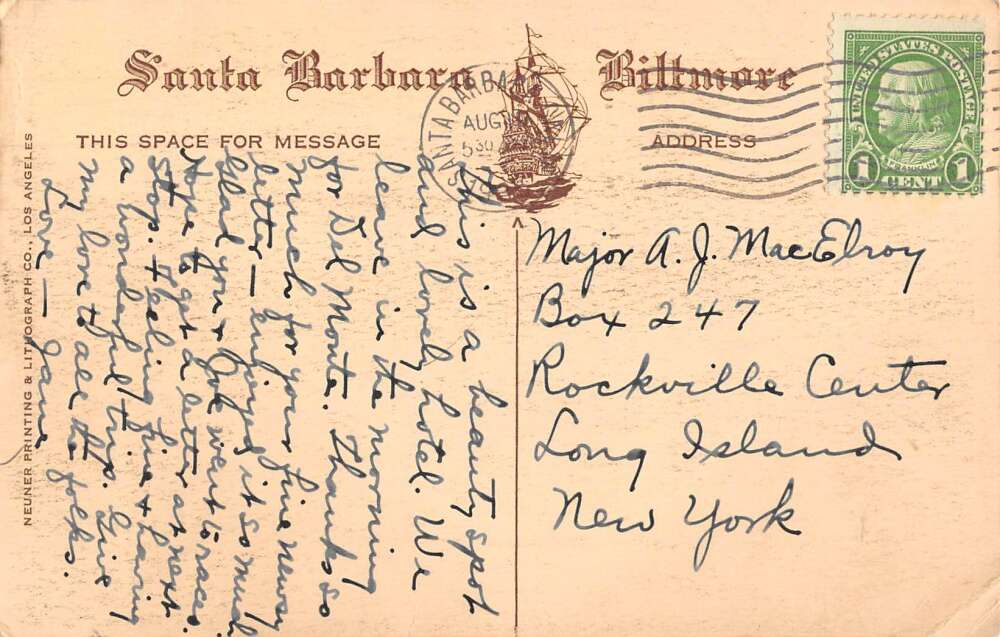 Santa Barbara Biltmore
THIS SPACE FOR MESSAGE
ADDRESS
SANTA BARBARA
AUG
5 30
UNITED STATES POSTAGE
FRANKLIN
1 CENT 1
This is a beauty spot
and lovely hotel. We
leave in the morning
for Del Monte. Thanks so
much for your fine newsy
letter — enjoyed it so much
Glad you & Joe went to races.
Hope to get a letter at next
stop. Feeling fine & having
a wonderful trip. Give
my love to all the folks.
Love — Jane
Major A. J. MacElroy
Box 247
Rockville Center
Long Island
New York
NEUNER PRINTING & LITHOGRAPH CO., LOS ANGELES